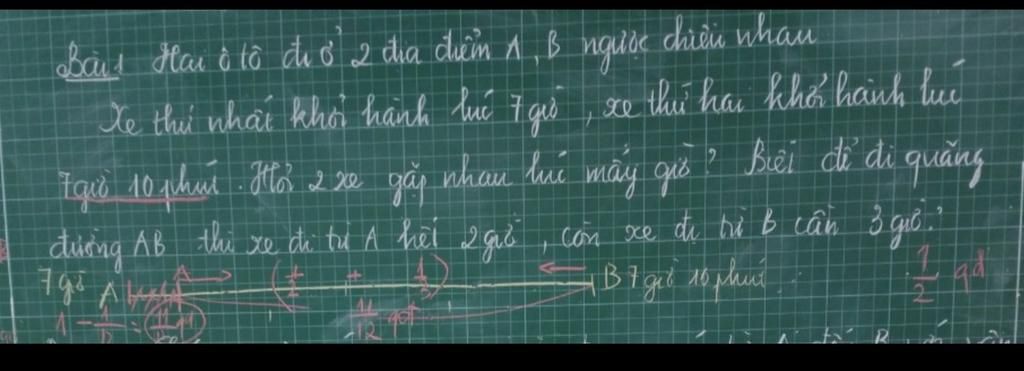 Bài 1 Hai ô tô đi ở 2 địa điểm A, B ngược chiều nhau
Xe thứ nhất khởi hành lúc 7 giờ, xe thứ hai khởi hành lúc
7 giờ 10 phút. Hỏi 2 xe gặp nhau lúc mấy giờ? Biết để đi quãng
đường AB thì xe đi từ A hết 2 giờ, còn xe đi từ B cần 3 giờ.
7 giờ A A ( 1/2 + 1/3 ) B 7 giờ 10 phút 1/2 qđ
11/12 qđ